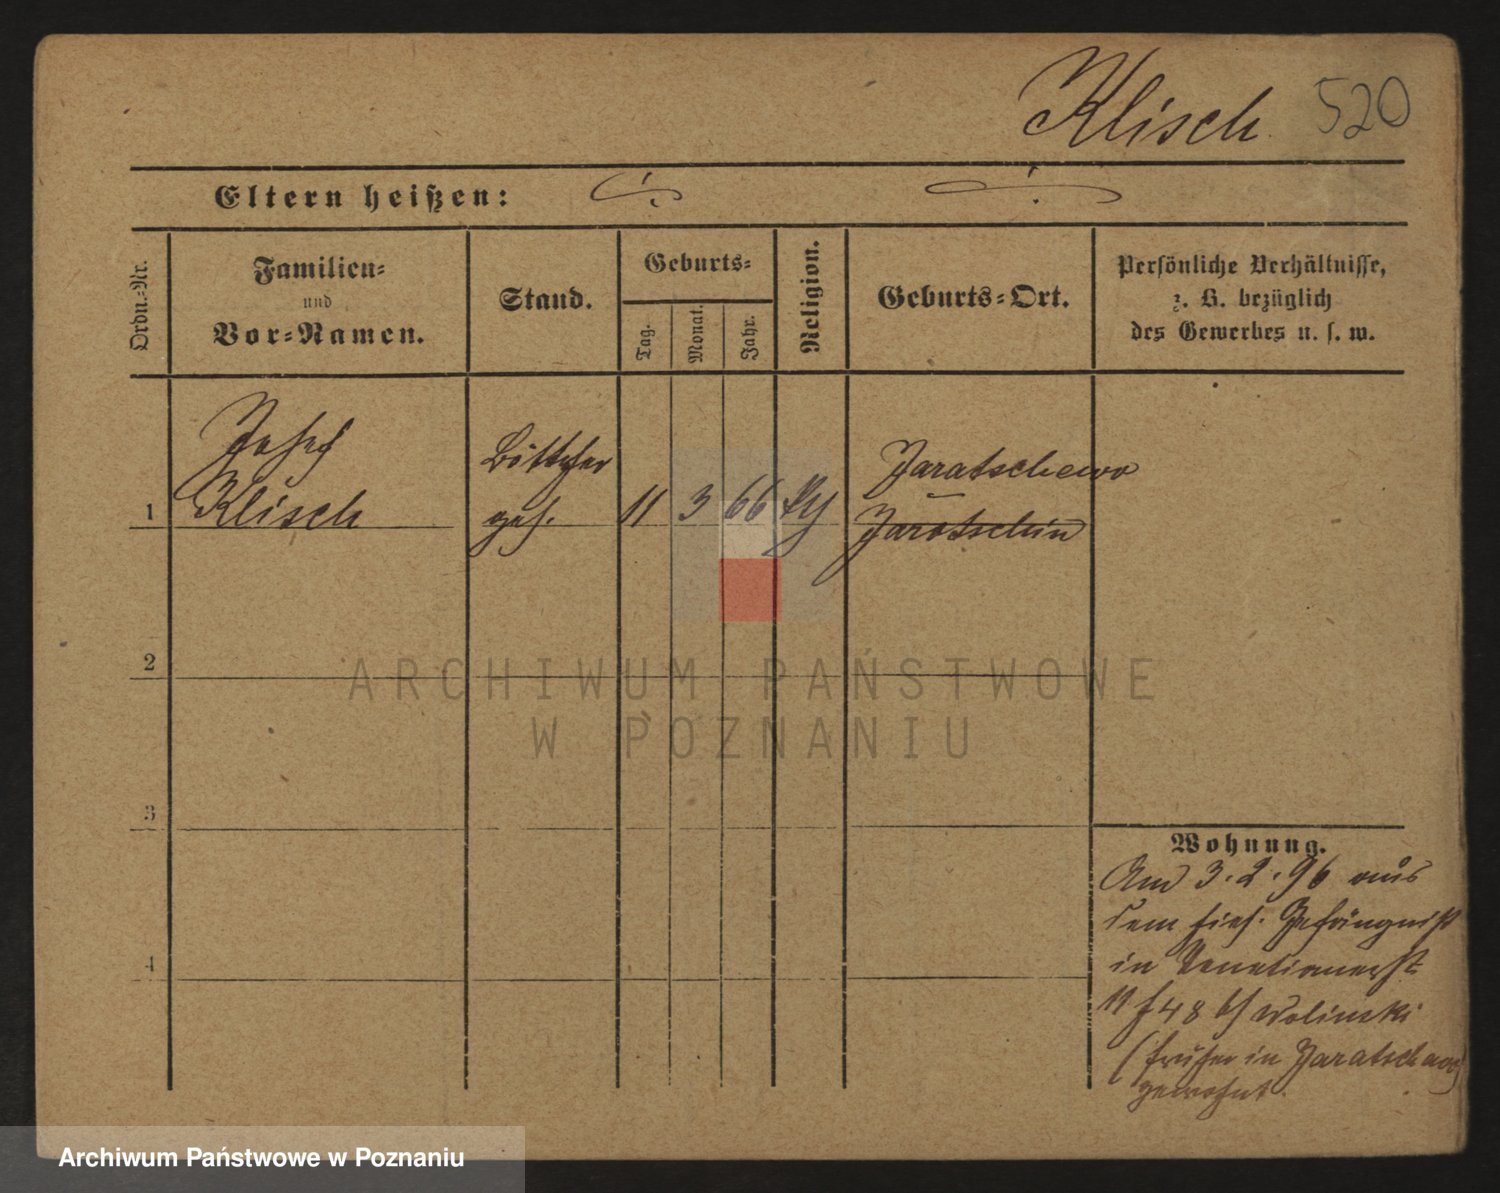 Klisch 520
Eltern heißen:
Ordn.-Nr.
Familien-
und
Vor-Namen.
Stand.
Geburts-
Tag.
Monat.
Jahr.
Religion.
Geburts-Ort.
Persönliche Verhältnisse,
z. B. bezüglich
des Gewerbes u. s. w.
Josef
Klisch
Böttcher
ges.
1
11 3 66
Jaratschewo
Jarotschin
2
3
4
Wohnung.
Am 3.2.96 aus
dem hies. Gefängniß
in Venetianerst
11 f 48 b/ Wolinski
(früher in Jaratschewo)
gewohnt.
ARCHIWUM PAŃSTWOWE
W POZNANIU
Archiwum Państwowe w Poznaniu